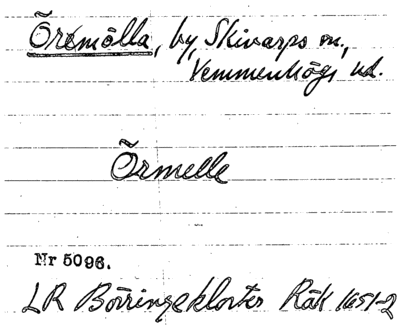 Öremölla, by, Skivarps sn.,
Vemmenhögs hd.
Örmelle
Nr 5096.
LR Börringekloster Räk 1651-2